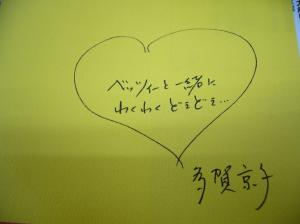 ベッツィーと一緒に
わくわく どきどき…
多賀京子